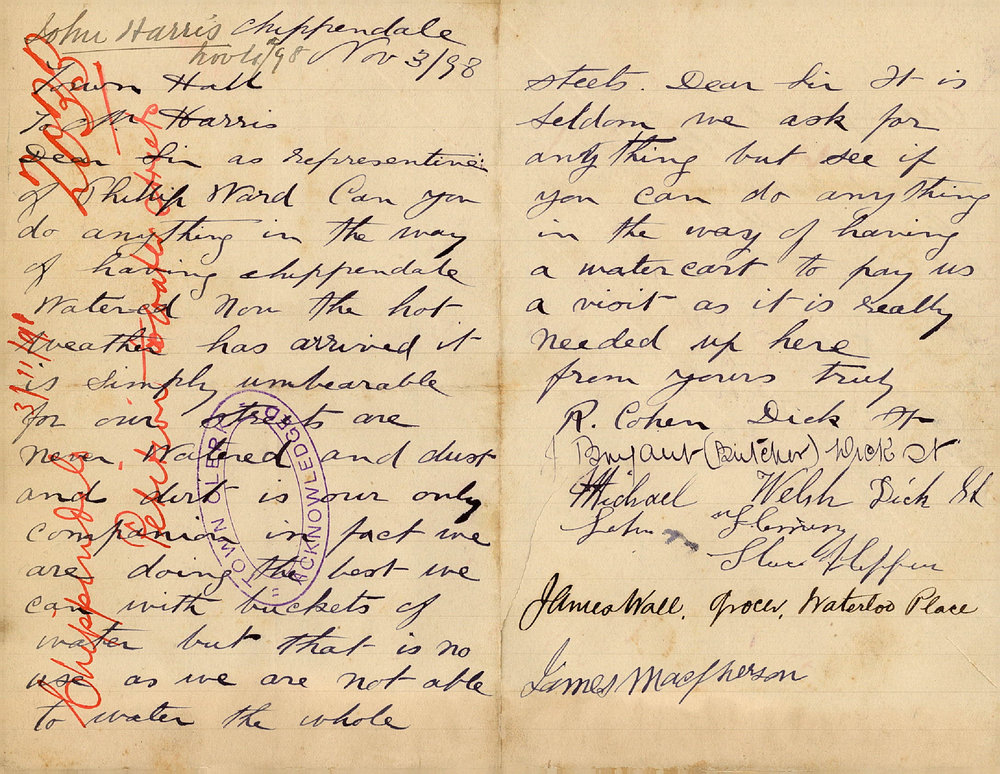 John Harris Chippendale
Nov 3/98
Town Hall
To Mr Harris
Dear Sir as representine
of Phillip Ward Can you
do anything in the way
of having chippendale
Watered Now the hot
weather has arrived it
is simply unbearable
for our streets are
never Watered and dust
and dirt is our only
companion in fact we
are doing the best we
can with buckets of
water but that is no
use as we are not able
to water the whole
steets. Dear Sir It is
seldom we ask for
anything but see if
you can do anything
in the way of having
a watercart to pay us
a visit as it is really
needed up here
from yours truly
R. Cohen Dick St
Bryant (Butcher) Dick St
Michael Welsh Dick St
John Fleming
James Wall, grocer, Waterloo Place
James Macpherson
Chippendale 3/11/98
Petition water streets
2033
TOWN CLERK
ACKNOWLEDGED